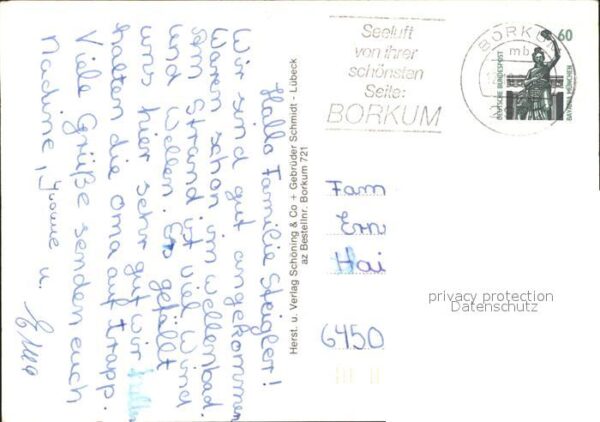 Hallo Familie Steigler!
Wir sind gut angekommen
Waren schon im Wellenbad.
Am Strand ist viel Wind
und Wellen. Es gefällt
uns hier sehr gut wir
halten die Oma auf trapp.
Viele Grüße senden euch
Nadine, Yvonne u.
Herst. u. Verlag Schöning & Co + Gebrüder Schmidt - Lübeck
az Bestellnr. Borkum 721
Seeluft
von ihrer
schönsten
Seite:
BORKUM
BORKUM
mb
60
DEUTSCHE BUNDESPOST
BAVARIA MÜNCHEN
Fam
Ern
Hai
6450
privacy protection
Datenschutz